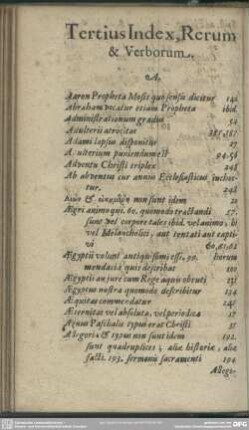 Tertius Index, Rerum
& Verborum.
A.
Aaron Propheta Mosis quo sensu dicitur 142
Abraham vocatur etiam Propheta ibid.
Administrationum gradus 52
Adulterii atrocitas
Adami lapsus dispositus 27
A. ulterium puniendum est 94.96
Adventu Christi triplex 248
Ab adventu cur annus Ecclesiasticus inchoe-
tur. 248
non sunt idem 22
Aegri animo qui. 60. quomodo tractandi 57.
sunt vel corpore tales ibid. vel animo, hi
vel Melancholici, aut tentati aut capti-
vi 60,61,62
Aegyptii volunt antiquissimi esse, 90. horum
mendacia quis describat 100
Aegyptii an jure cum Rege aquis obruti 131
Aegyptus nostra quomodo describitur 134
Aequitas commendatur 241
Aeternitas vel absoluta, vel periodica 17
Agnus Paschalis typus erat Christi 35
Allegoria & typus non sunt idem
sunt quadruplices; aliae historiae, aliae
facti. 193. sermonis sacramenti 194
Allego-